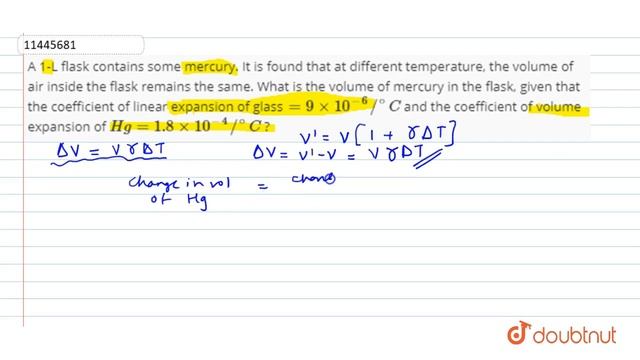 11445681
A 1-L flask contains some mercury. It is found that at different temperature, the volume of
air inside the flask remains the same. What is the volume of mercury in the flask, given that
the coefficient of linear expansion of glass = 9 × 10⁻⁶/°C and the coefficient of volume
expansion of Hg = 1.8 × 10⁻⁴/°C ?
V' = V [ 1 + γΔT ]
ΔV = V γ ΔT
ΔV = V' - V = V γ ΔT
change in vol = chan
of Hg
doubtnut